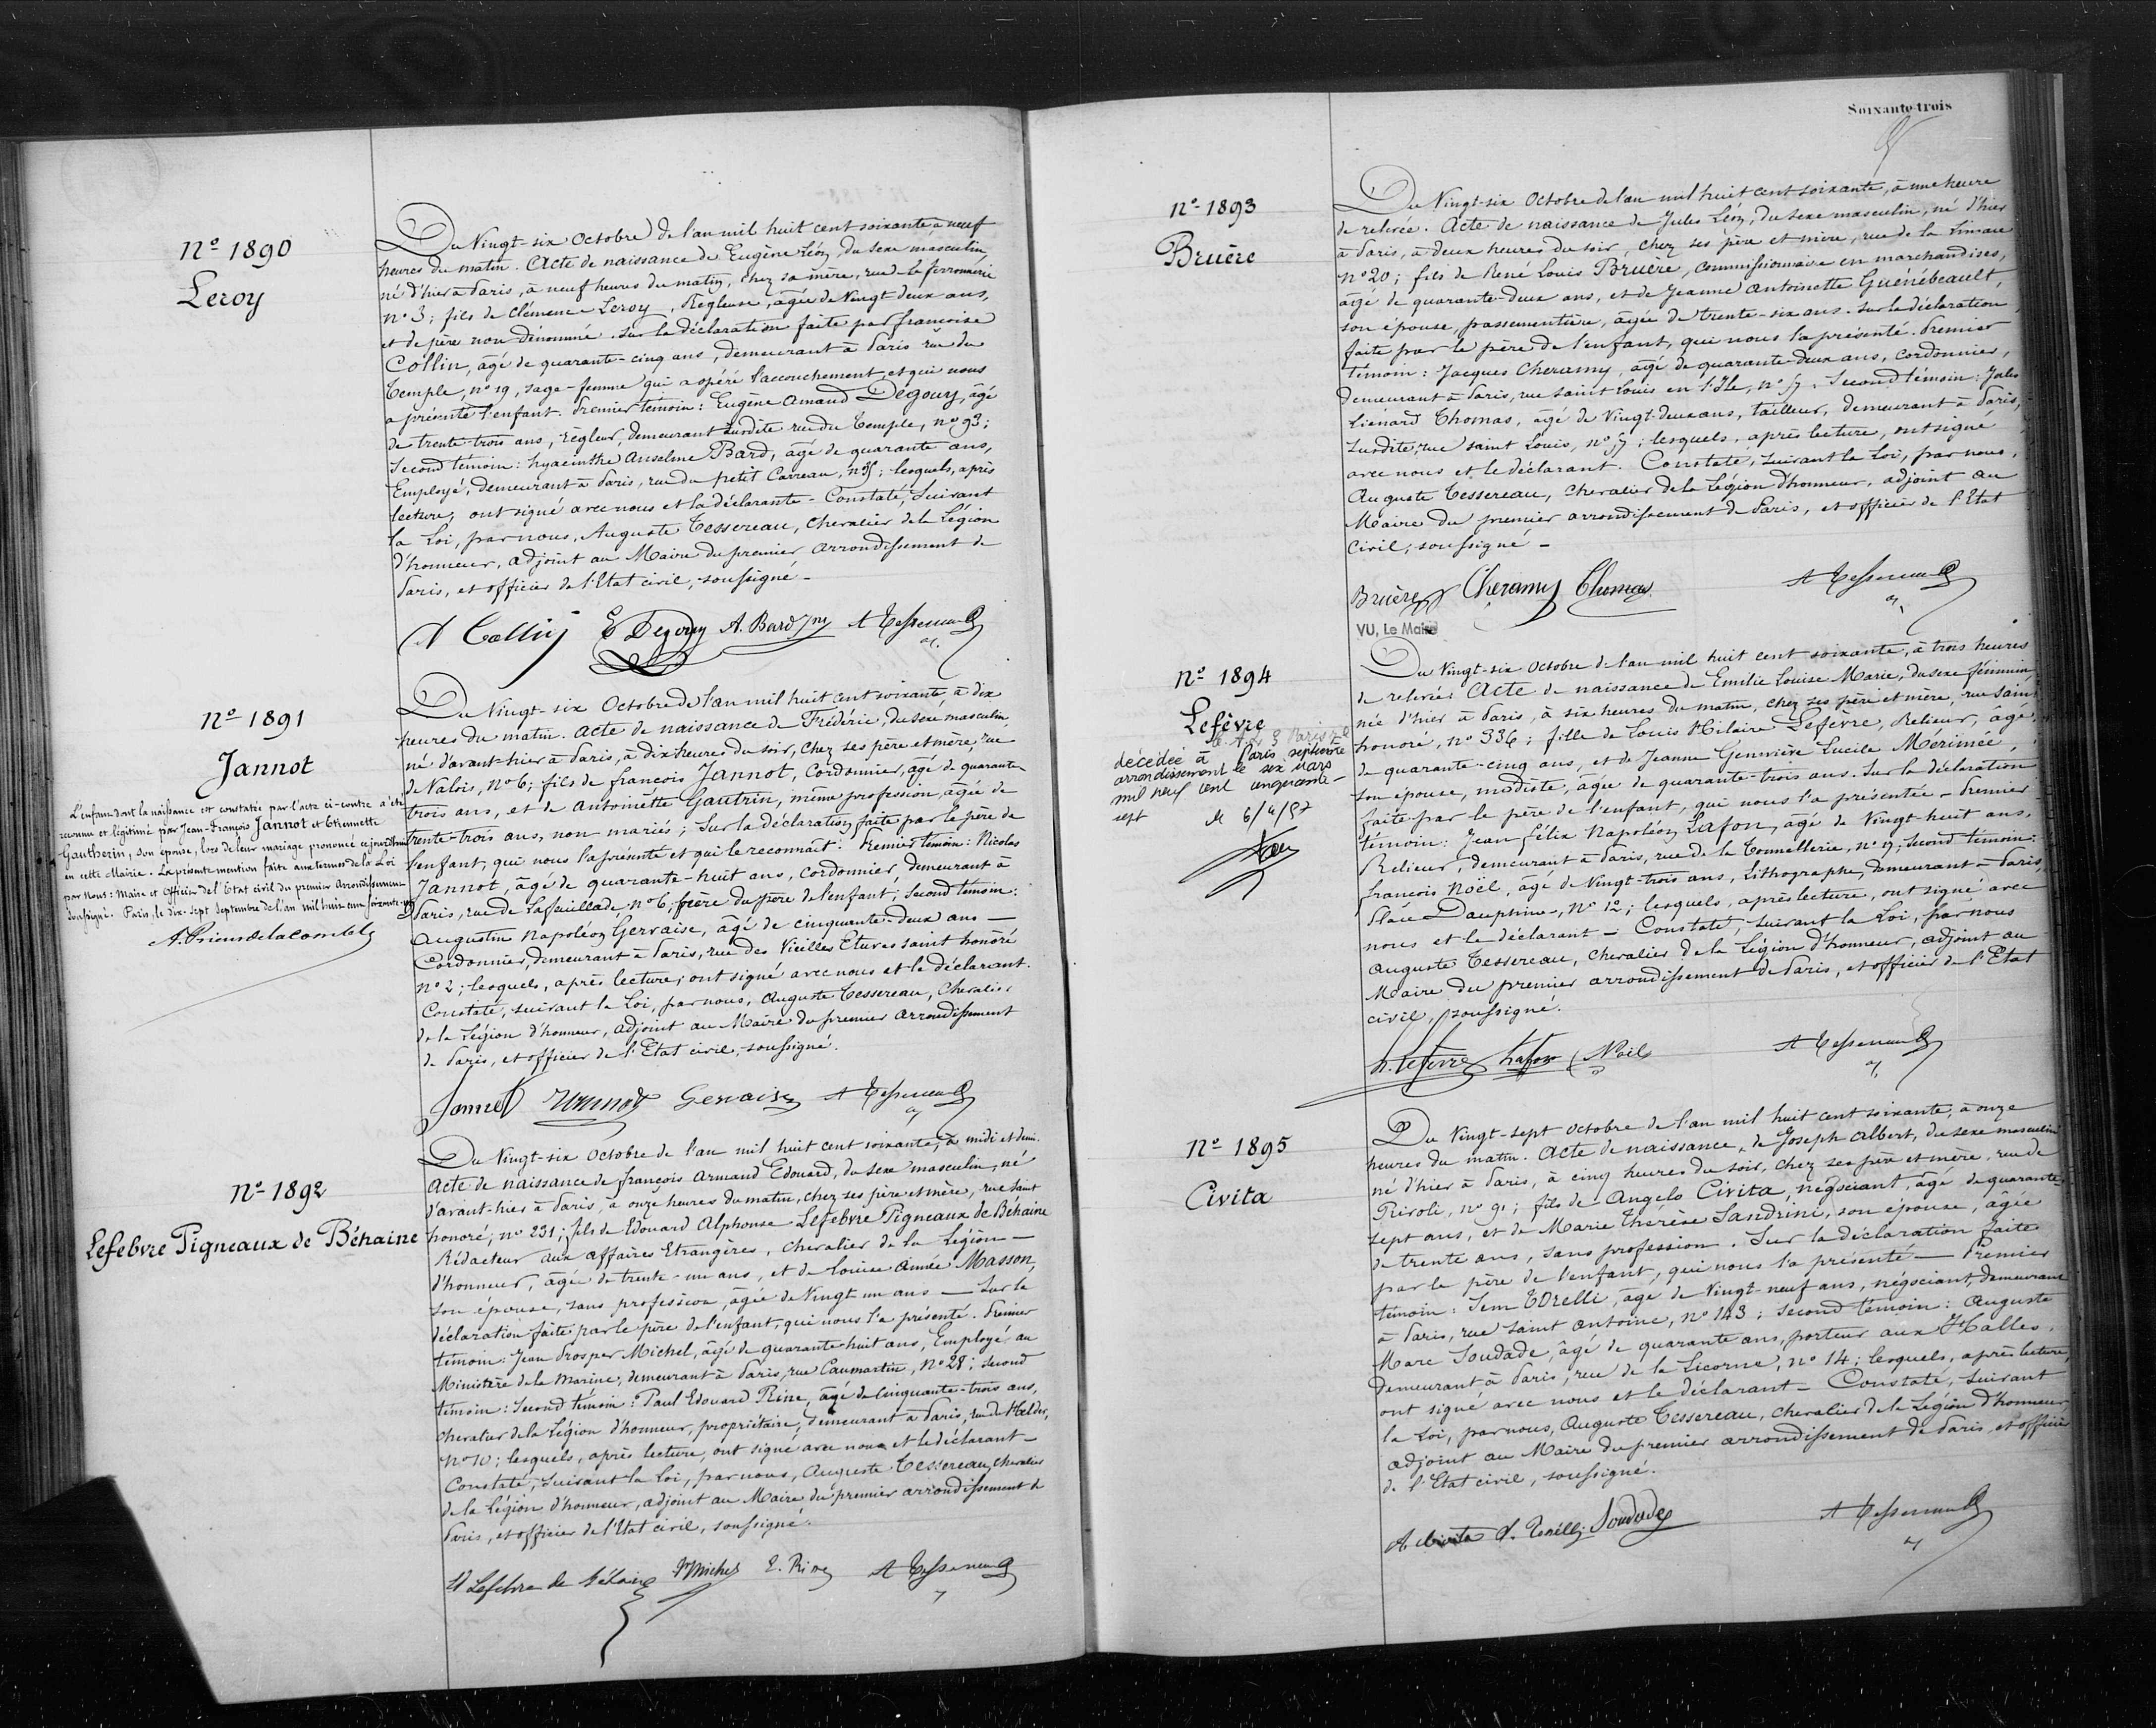 Nº 1890
Leroy
Du Vingt-six Octobre de l'an mil huit cent soixante à neuf
heures du matin. Acte de naissance de Eugène Léon, du sexe masculin,
né d'hier à Paris, à neuf heures du matin, chez sa mère, rue de la ferronnerie
nº 3; fils de Clémence Leroy, Régleuse, âgée de Vingt-deux ans,
et de père non dénommé. Sur la déclaration faite par françoise
Collin, âgé de quarante-cinq ans, demeurant à Paris rue du
Temple, nº 19, sage-femme qui a opéré l'accouchement, et qui nous
a présenté l'enfant. Premier témoin: Eugène Amand Dégouy, âgé
de trente-trois ans, régleur, demeurant susdite rue du Temple, nº 93;
Second témoin: hyacinthe Anselme Bard, âgé de quarante ans,
Employé, demeurant à Paris, rue du petit Carreau, lesquels, après
lecture, ont signé avec nous et la déclarante - Constaté, Suivant
la Loi, par nous, Auguste Tessereau, Chevalier de la Légion
d'honneur, adjoint au Maire du premier arrondissement de
Paris, et officier de l'Etat civil, soussigné -
Collin E Degouy A. Bard A Tessereau
Nº 1891
Jannot
L'enfant dont la naissance est constatée par l'acte ci-contre a été
reconnu et légitimé par Jean-François Jannot et Etiennette
Gautherin, son épouse, lors de leur mariage prononcé cejourd'hui
en cette Mairie. La présente mention faite aux termes de la Loi
par Nous: Maire et Officier de l'Etat civil du premier Arrondissement
soussigné. Paris, le dix-sept Septembre de l'an mil huit cent soixante-
Du Vingt-six Octobre de l'an mil huit cent soixante, à dix
heures du matin. Acte de naissance de Frédéric, du sexe masculin
né d'avant-hier à Paris, à dix heures du soir, chez ses père et mère, rue
de Valois, nº 6; fils de françois Jannot, Cordonnier, âgé de quarante
trois ans, et de Antoinette Gautrin, même profession, âgée de
trente-trois ans, non mariés; Sur la déclaration faite par le père de
l'enfant, qui nous l'a présenté et qui le reconnaît. Premier témoin: Nicolas
Jannot, âgé de quarante-huit ans, Cordonnier, demeurant à
Paris, rue de Lafeuillade nº 6, frère du père de l'enfant; Second témoin:
Augustin Napoléon Gervaise, âgé de cinquante-deux ans —
Cordonnier, demeurant à Paris, rue des Vieilles Etuves saint honoré
nº 2; lesquels, après lecture, ont signé avec nous et le déclarant.
Constaté, suivant la Loi, par nous, Auguste Tessereau, Chevalier
de la Légion d'honneur, adjoint au Maire du premier arrondissement
de Paris, et officier de l'Etat civil, soussigné.
Jannot Jannot Gervaise A Tessereau
Nº 1892
Lefebvre Pigneaux de Béhaine
Du Vingt-six Octobre de l'an mil huit cent soixante, à midi et demi.
Acte de naissance de françois Armand Edouard, du sexe masculin, né
d'avant-hier à Paris, à onze heures du matin, chez ses père et mère, rue Saint
honoré, nº 231; fils de Edouard Alphonse Lefebvre Pigneaux de Béhaine
Rédacteur aux affaires Etrangères, Chevalier de la Légion —
d'honneur, âgé de trente-un ans, et de Louise Aimée Masson,
son épouse, sans profession, âgée de Vingt un ans — Sur la
déclaration faite par le père de l'enfant, qui nous l'a présenté. Premier
témoin: Jean Prosper Michel, âgé de quarante-huit ans, Employé au
Ministère de la Marine, demeurant à Paris, rue Caumartin, Nº 28; Second
témoin: Second témoin: Paul Edouard Rine, âgé de Cinquante-trois ans,
Chevalier de la Légion d'honneur, propriétaire, demeurant à Paris, rue du Helder,
nº 10; lesquels, après lecture, ont signé avec nous et le déclarant -
Constaté, suivant la Loi, par nous, Auguste Tessereau, chevalier
de la Légion d'honneur, adjoint au Maire du premier arrondissement de
Paris, et officier de l'Etat civil, soussigné.
Lefebvre de Béhaine Michel E. Rine A Tessereau
Soixante-trois
Nº 1893
Bruère
Du Vingt-six Octobre de l'an mil huit cent soixante, à une heure
de relevée. Acte de naissance de Jules Léon, du sexe masculin, né d'hier
à Paris, à deux heures du soir, chez ses père et mère, rue de la
nº 20; fils de René Louis Bruère, Commissionnaire en marchandises,
âgé de quarante-deux ans, et de Jeanne Antoinette Guénébeault,
son épouse, passementière, âgée de trente-six ans. Sur la déclaration
faite par le père de l'enfant, qui nous l'a présenté. Premier
témoin: Jacques Cheramy, âgé de quarante-deux ans, Cordonnier,
demeurant à Paris, rue saint Louis en l'Ile, nº 7; Second témoin: Jules
Liénard Thomas, âgé de Vingt-deux ans, tailleur, demeurant à Paris,
susdite rue saint Louis, nº 7; lesquels, après lecture, ont signé
avec nous et le déclarant. Constaté, suivant la Loi, par nous,
Auguste Tessereau, Chevalier de la Légion d'honneur, adjoint au
Maire du premier arrondissement de Paris, et officier de l'Etat
Civil, soussigné -
Bruère Cheramy Thomas A Tessereau
VU, Le Maire
Nº 1894
Lefèvre
décédée à Paris septième
arrondissement le six mars
mil neuf cent cinquante-
sept
Du Vingt-six Octobre de l'an mil huit cent soixante, à trois heures
de relevée. Acte de naissance de Emilie Louise Marie, du sexe féminin
née d'hier à Paris, à six heures du matin, chez ses père et mère, rue Saint
honoré, nº 336; fille de Louis Hilaire Lefèvre, Relieur, âgé
de quarante-cinq ans, et de Jeanne Geneviève Lucile Mérimée,
son épouse, modiste, âgée de quarante-trois ans. Sur la déclaration
faite par le père de l'enfant, qui nous l'a présentée - Premier
témoin: Jean félix Napoléon Lafon, âgé de Vingt huit ans,
Relieur, demeurant à Paris, rue de la Tonnellerie, nº 9; Second témoin:
françois Noël, âgé de Vingt-trois ans, Lithographe, demeurant à Paris,
Place Dauphine, Nº 12; lesquels, après lecture, ont signé avec
nous et le déclarant - Constaté, suivant la Loi, par nous
Auguste Tessereau, Chevalier de la Légion d'honneur, adjoint au
Maire du premier arrondissement de Paris, et officier de l'Etat
civil, soussigné.
Lefèvre Lafon Noël A Tessereau
Nº 1895
Civita
Du Vingt-sept Octobre de l'an mil huit cent soixante, à onze
heures du matin. Acte de naissance de Joseph Albert, du sexe masculin
né d'hier à Paris, à cinq heures du soir, chez ses père et mère, rue de
Rivoli, nº 91; fils de Angelo Civita, négociant, âgé de quarante-
sept ans, et de Marie Thérèse Sandrini, son épouse, âgée
de trente ans, sans profession. Sur la déclaration faite
par le père de l'enfant, qui nous l'a présenté — Premier
témoin: Sem Torelli, âgé de Vingt-neuf ans, négociant, demeurant
à Paris, rue Saint Antoine, nº 143; Second témoin: Auguste
Marc Soudade, âgé de quarante ans, porteur aux Halles,
demeurant à Paris, rue de la Licorne, nº 14; lesquels, après lecture,
ont signé avec nous et le déclarant - Constaté, suivant
la Loi, par nous, Auguste Tessereau, Chevalier de la Légion d'honneur
adjoint au Maire du premier arrondissement de Paris, et officier
de l'Etat civil, soussigné.
A Civita S. Torelli Soudade A Tessereau